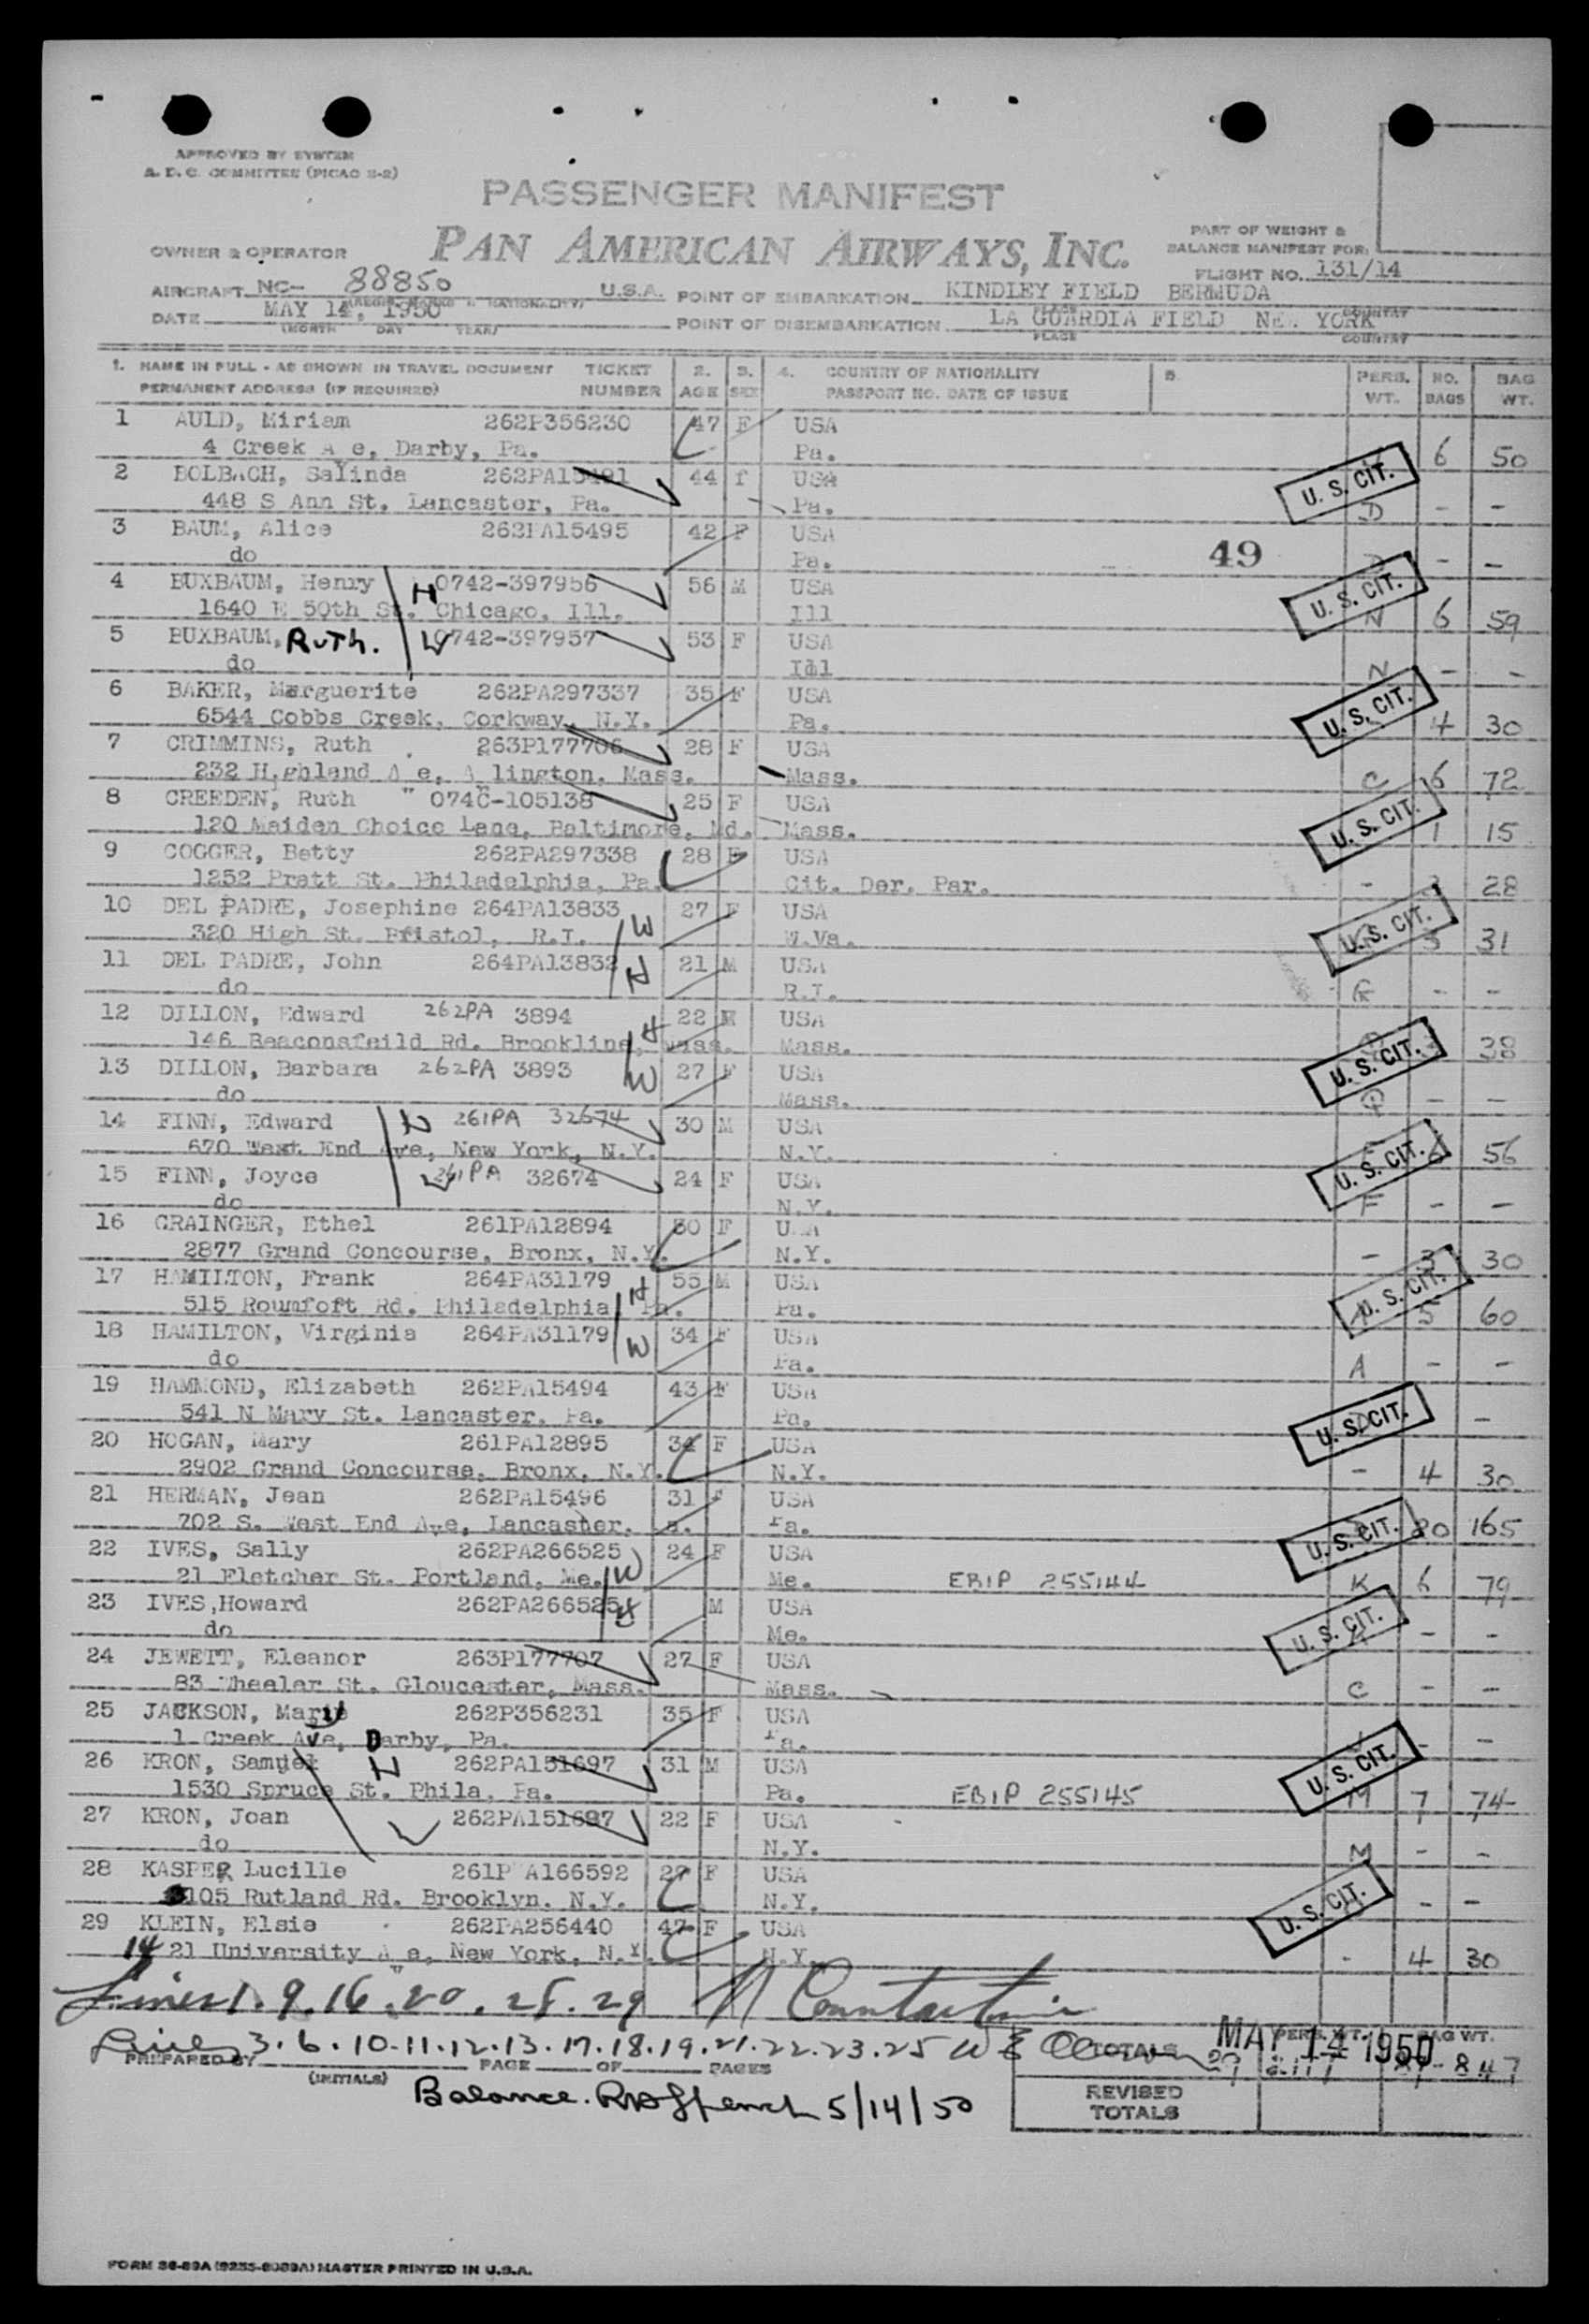 APPROVED BY SYSTEM
A. D. C. COMMITTEE (PICAO S-2)
PASSENGER MANIFEST
OWNER & OPERATOR PAN AMERICAN AIRWAYS, INC.
PART OF WEIGHT &
BALANCE MANIFEST FOR:
FLIGHT NO. 131/14
AIRCRAFT NC- 88850 U.S.A. POINT OF EMBARKATION KINDLEY FIELD BERMUDA
DATE MAY 14, 1950 POINT OF DISEMBARKATION LA GUARDIA FIELD NEW YORK
(MONTH DAY YEAR) PLACE COUNTRY
1. NAME IN FULL - AS SHOWN IN TRAVEL DOCUMENT TICKET 2. 3. 4. COUNTRY OF NATIONALITY 5. PERS. NO. BAG
PERMANENT ADDRESS (IF REQUIRED) NUMBER AGE SEX PASSPORT NO. DATE OF ISSUE WT. BAGS WT.
1 AULD, Miriam 262P356230 47 F USA
4 Creek A e, Darby, Pa. Pa. 6 50
2 BOLBACH, Salinda 262PA15491 44 f USA U. S. CIT.
448 S Ann St. Lancaster, Pa. Pa. D - -
3 BAUM, Alice 262PA15495 42 F USA
do Pa. 49 D - -
4 BUXBAUM, Henry H 0742-397956 56 M USA U. S. CIT.
1640 E 50th St. Chicago, Ill. Ill N 6 59
5 BUXBAUM, RuTh. W 0742-397957 53 F USA
do Ill N - -
6 BAKER, Marguerite 262PA297337 35 F USA U. S. CIT.
6544 Cobbs Creek, Corkway, N.Y. Pa. 4 30
7 CRIMMINS, Ruth 263P177706 28 F USA
232 Highland A e, A lington, Mass. Mass. C 6 72
8 CREEDEN, Ruth " 074C-105138 25 F USA U. S. CIT.
120 Maiden Choice Lane, Baltimore, Md. Mass. 1 15
9 COGGER, Betty 262PA297338 28 F USA
1252 Pratt St. Philadelphia, Pa. Cit. Der. Par. - 28
10 DEL PADRE, Josephine 264PA13833 27 F USA U. S. CIT.
320 High St. Bristol, R.I. W W.Va. 3 31
11 DEL PADRE, John 264PA13832 H 21 M USA
do R.I. G - -
12 DILLON, Edward 262PA 3894 22 M USA
146 Beaconsfeild Rd. Brookline, Mass. H Mass. 38
13 DILLON, Barbara 262PA 3893 W 27 F USA U. S. CIT.
do Mass. - -
14 FINN, Edward H 261PA 32674 30 M USA
670 West End Ave, New York, N.Y. N.Y. 56
15 FINN, Joyce W 261PA 32674 24 F USA U. S. CIT.
do N.Y. F - -
16 GRAINGER, Ethel 261PA12894 30 F U.A
2877 Grand Concourse, Bronx, N.Y. N.Y. - 3 30
17 HAMILTON, Frank 264PA31179 H 55 M USA U. S. CIT.
515 Roumfort Rd. Philadelphia Pa. Pa. A 5 60
18 HAMILTON, Virginia 264PA31179 W 34 F USA
do Pa. A - -
19 HAMMOND, Elizabeth 262PA15494 43 F USA U. S. CIT.
541 N Mary St. Lancaster, Pa. Pa. -
20 HOGAN, Mary 261PA12895 34 F USA
2902 Grand Concourse, Bronx, N.Y. N.Y. - 4 30
21 HERMAN, Jean 262PA15496 31 F USA U. S. CIT.
702 S. West End Ave, Lancaster, a. Pa. 20 165
22 IVES, Sally 262PA266525 24 F USA
21 Fletcher St. Portland, Me. W Me. EBIP 255144 K 6 79
23 IVES,Howard 262PA266525 H M USA U. S. CIT.
do Me. - -
24 JEWETT, Eleanor 263P177707 27 F USA
83 Wheeler St. Gloucester, Mass. Mass. C - -
25 JACKSON, Mary 262P356231 35 F USA
1 Creek Ave, Darby, Pa. Pa. - -
26 KRON, Samuel H 262PA151697 31 M USA U. S. CIT.
1530 Spruce St. Phila, Pa. Pa. EBIP 255145 M 7 74
27 KRON, Joan W 262PA151697 22 F USA
do N.Y. M - -
28 KASPER Lucille 261P A166592 29 F USA U. S. CIT.
105 Rutland Rd. Brooklyn, N.Y. N.Y. - -
29 KLEIN, Elsie 262PA256440 47 F USA
1421 University A e, New York, N.Y. N.Y. - 4 30
Lines 1. 9. 16. 20. 28. 29
Lines 3. 6. 10. 11. 12. 13. 17. 18. 19. 21. 22. 23. 25
PREPARED BY PAGE OF PAGES TOTALS PERS. WT. BAG WT.
(INITIALS)
MAY 14 1950
29 847
Balance. 5/14/50
REVISED
TOTALS
FORM 36-89A (9255-6089A) MASTER PRINTED IN U.S.A.